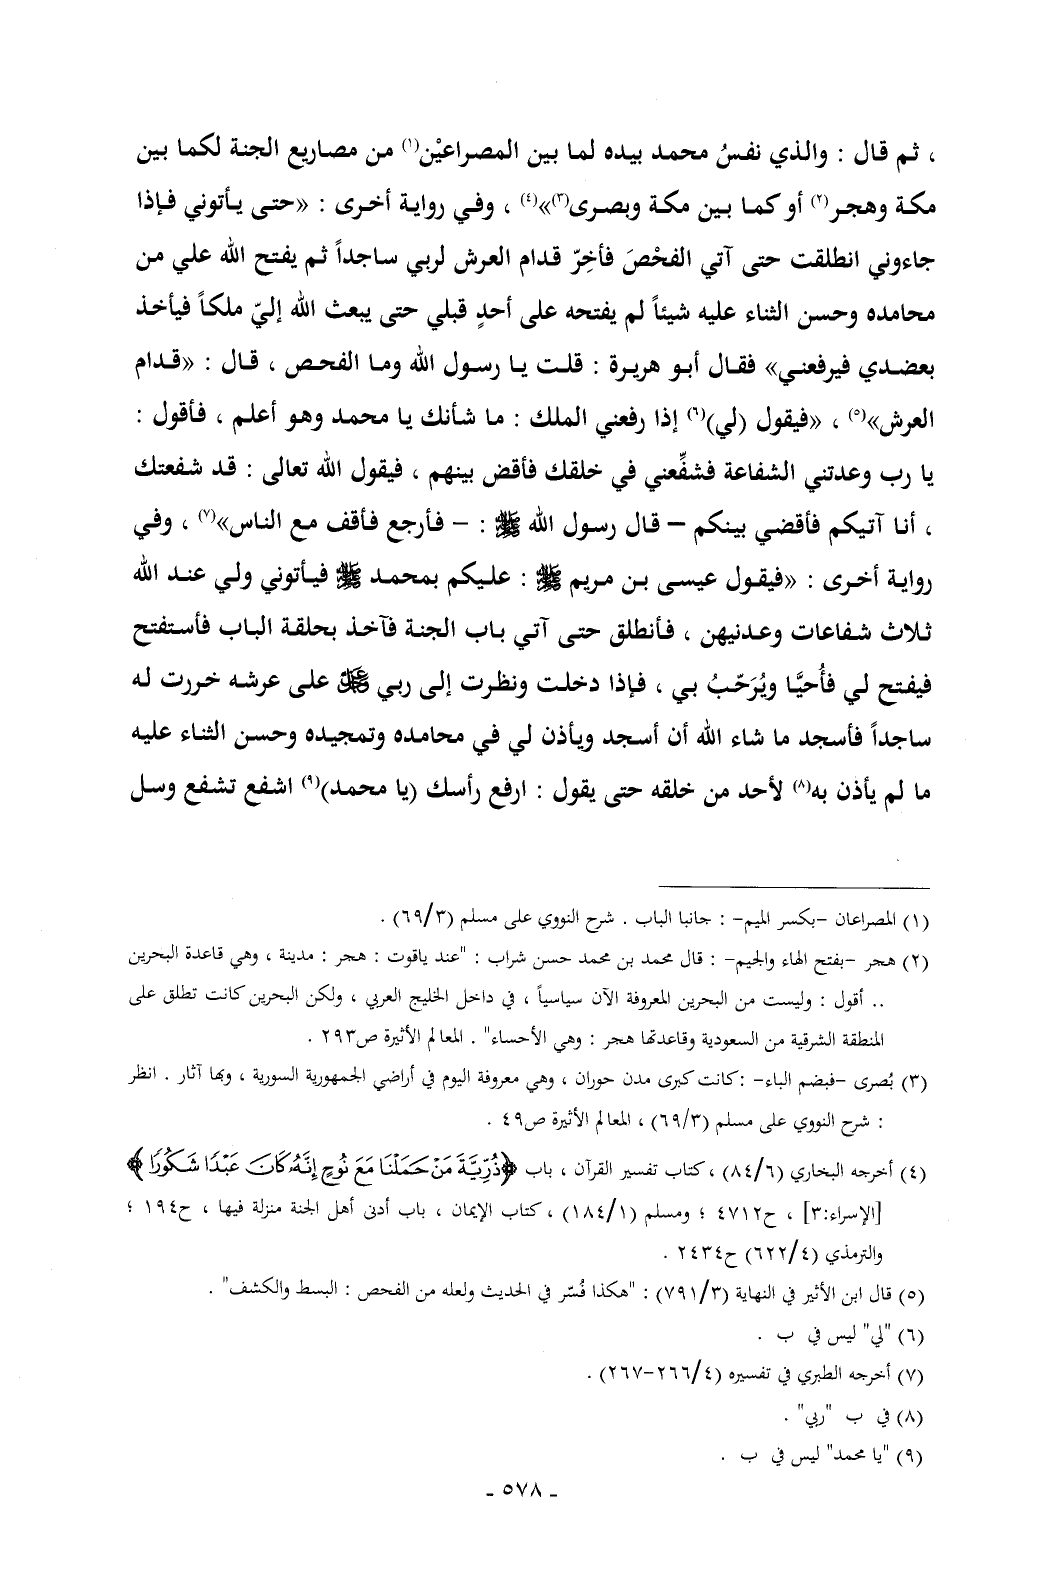 ، ثم قال : والذي نفسُ محمد بيده لما بين المصراعيْن(١) من مصاريع الجنة لكما بين
مكة وهجر(٢) أو كما بين مكة وبصرى(٣)»(٤) ، وفي رواية أخرى : «حتى يأتوني فإذا
جاءوني انطلقت حتى آتي الفحْصَ فأخِرّ قدام العرش لربي ساجداً ثم يفتح الله علي من
محامده وحسن الثناء عليه شيئاً لم يفتحه على أحدٍ قبلي حتى يبعث الله إليّ ملكاً فيأخذ
بعضدي فيرفعني» فقال أبو هريرة : قلت يا رسول الله وما الفحص ، قال : «قدام
العرش»(٥) ، «فيقول (لي)(٦) إذا رفعني الملك : ما شأنك يا محمد وهو أعلم ، فأقول :
يا رب وعدتني الشفاعة فشفِّعني في خلقك فأقض بينهم ، فيقول الله تعالى : قد شفعتك
، أنا آتيكم فأقضي بينكم – قال رسول الله ﷺ : – فأرجع فأقف مع الناس»(٧) ، وفي
رواية أخرى : «فيقول عيسى بن مريم ﷺ : عليكم بمحمد ﷺ فيأتوني ولي عند الله
ثلاث شفاعات وعدنيهن ، فأنطلق حتى آتي باب الجنة فآخذ بحلقة الباب فأستفتح
فيفتح لي فأُحيَّا ويُرَحّبُ بي ، فإذا دخلت ونظرت إلى ربي ﷻ على عرشه خررت له
ساجداً فأسجد ما شاء الله أن أسجد ويأذن لي في محامده وتمجيده وحسن الثناء عليه
ما لم يأذن به(٨) لأحد من خلقه حتى يقول : ارفع رأسك (يا محمد)(٩) اشفع تشفع وسل
(١) المصراعان -بكسر الميم- : جانبا الباب . شرح النووي على مسلم (٦٩/٣) .
(٢) هجر -بفتح الهاء والجيم- : قال محمد بن محمد حسن شراب : "عند ياقوت : هجر : مدينة ، وهي قاعدة البحرين
.. أقول : وليست من البحرين المعروفة الآن سياسياً ، في داخل الخليج العربي ، ولكن البحرين كانت تطلق على
المنطقة الشرقية من السعودية وقاعدتها هجر : وهي الأحساء" . المعالم الأثيرة ص٢٩٣ .
(٣) بُصرى -فبضم الباء- :كانت كبرى مدن حوران ، وهي معروفة اليوم في أراضي الجمهورية السورية ، وبها آثار . انظر
: شرح النووي على مسلم (٦٩/٣) ، المعالم الأثيرة ص٤٩ .
(٤) أخرجه البخاري (٨٤/٦) ، كتاب تفسير القرآن ، باب ﴿ذُرِّيَّةَ مَنْ حَمَلْنَا مَعَ نُوحٍ إِنَّهُ كَانَ عَبْدًا شَكُورًا﴾
[الإسراء:٣] ، ح٤٧١٢ ؛ ومسلم (١٨٤/١) ، كتاب الإيمان ، باب أدنى أهل الجنة منزلة فيها ، ح١٩٤ ؛
والترمذي (٦٢٢/٤) ح٢٤٣٤ .
(٥) قال ابن الأثير في النهاية (٧٩١/٣) : "هكذا فُسّر في الحديث ولعله من الفحص : البسط والكشف" .
(٦) "لي" ليس في ب .
(٧) أخرجه الطبري في تفسيره (٢٦٦/٤-٢٦٧) .
(٨) في ب "ربي" .
(٩) "يا محمد" ليس في ب .
- ٥٧٨ -